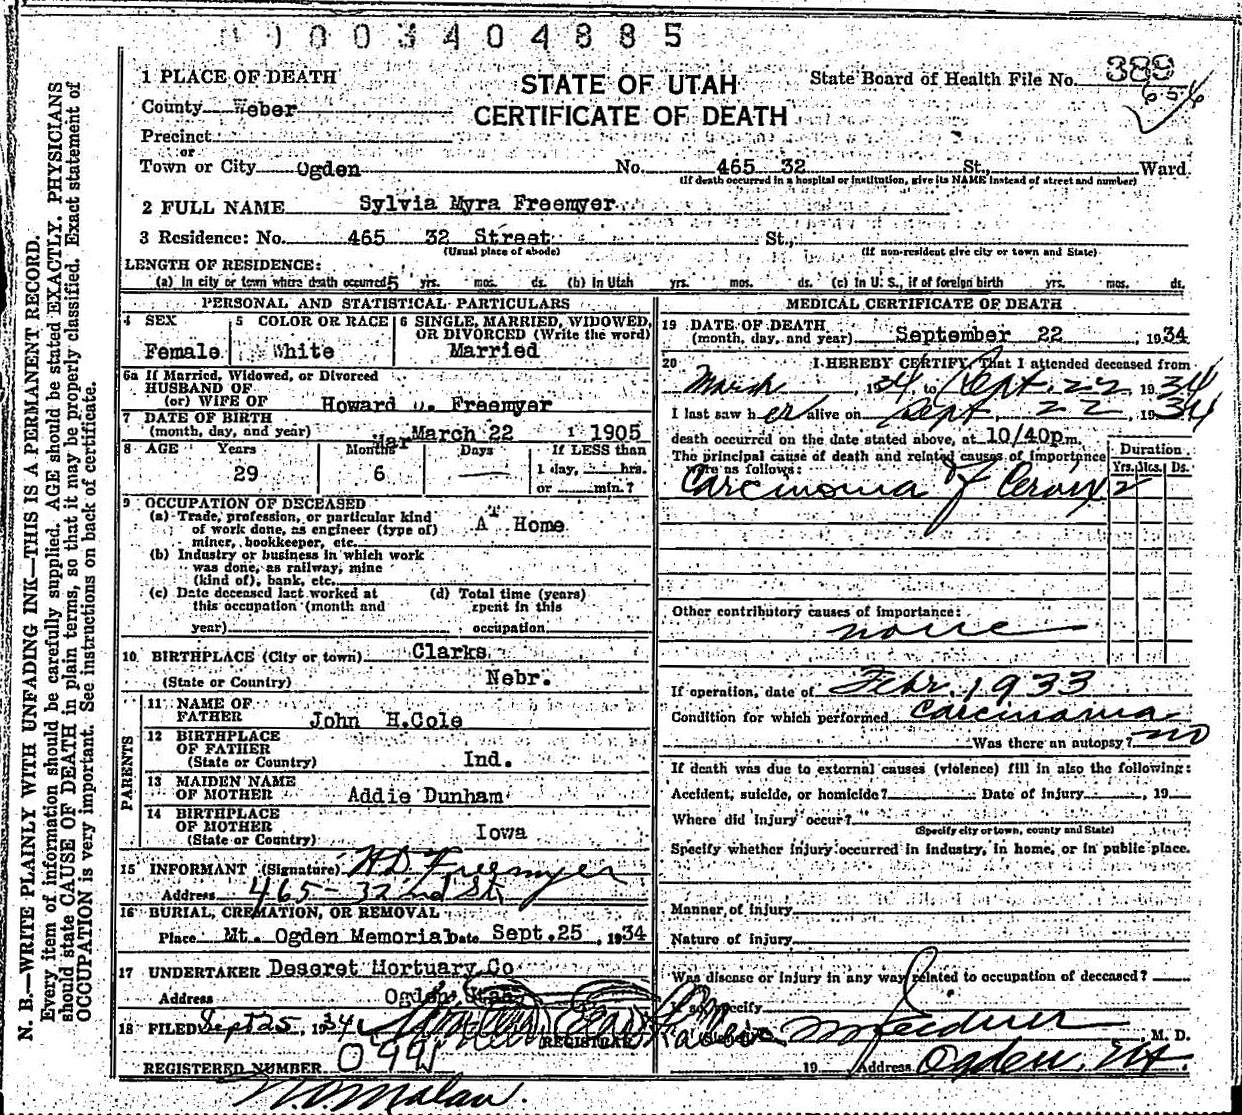 003404885
1 PLACE OF DEATH
STATE OF UTAH
CERTIFICATE OF DEATH
State Board of Health File No. 389
County Weber
Precinct
or
Town or City Ogden No. 465 32 St., Ward
(If death occurred in a hospital or institution, give its NAME instead of street and number)
2 FULL NAME Sylvia Myra Freemyer
3 Residence: No. 465 32 Street St.,
(Usual place of abode) (If non-resident give city or town and State)
LENGTH OF RESIDENCE:
(a) In city or town where death occurred 5 yrs. mos. ds. (b) In Utah yrs. mos. ds. (c) In U. S., if of foreign birth yrs. mos. ds.
PERSONAL AND STATISTICAL PARTICULARS
4 SEX 5 COLOR OR RACE 6 SINGLE, MARRIED, WIDOWED, OR DIVORCED (Write the word)
Female White Married
6a If Married, Widowed, or Divorced
HUSBAND OF
(or) WIFE OF Howard D. Freemyer
7 DATE OF BIRTH
(month, day, and year) Mar March 22 1 1905
8 AGE Years Months Days If LESS than
29 6 1 day, hrs.
or min.?
9 OCCUPATION OF DECEASED
(a) Trade, profession, or particular kind
of work done, as engineer (type of)
miner, bookkeeper, etc. AT Home
(b) Industry or business in which work
was done, as railway, mine
(kind of), bank, etc.
(c) Date deceased last worked at (d) Total time (years)
this occupation (month and spent in this
year) occupation
10 BIRTHPLACE (City or town) Clarks
(State or Country) Nebr.
PARENTS
11 NAME OF
FATHER John H. Cole
12 BIRTHPLACE
OF FATHER
(State or Country) Ind.
13 MAIDEN NAME
OF MOTHER Addie Dunham
14 BIRTHPLACE
OF MOTHER
(State or Country) Iowa
15 INFORMANT (Signature) H D Freemyer
Address 465 - 32nd St.
16 BURIAL, CREMATION, OR REMOVAL
Place Mt. Ogden Memorial Date Sept. 25, 1934
17 UNDERTAKER Deseret Mortuary Co
Address Ogden Utah
18 FILED Sept 25, 1934
REGISTRAR
REGISTERED NUMBER
MEDICAL CERTIFICATE OF DEATH
19 DATE OF DEATH
(month, day, and year) September 22, 1934
20 I HEREBY CERTIFY, That I attended deceased from
March, 1934, to Sept. 22 1934
I last saw her alive on Sept. 22, 1934
death occurred on the date stated above, at 10/40p.m.
The principal cause of death and related causes of importance
were as follows:
Duration
Yrs. Mos. Ds.
Carcinoma of Cervix 2
Other contributory causes of importance:
none
If operation, date of Febr. 1933
Condition for which performed Carcinoma
Was there an autopsy? no
If death was due to external causes (violence) fill in also the following:
Accident, suicide, or homicide? Date of injury, 19
Where did injury occur?
(Specify city or town, county and State)
Specify whether injury occurred in industry, in home, or in public place.
Manner of injury
Nature of injury
Was disease or injury in any way related to occupation of deceased?
If so, specify
M. D.
19 Address Ogden, Ut
N. B.—WRITE PLAINLY WITH UNFADING INK—THIS IS A PERMANENT RECORD.
Every item of information should be carefully supplied. AGE should be stated EXACTLY. PHYSICIANS
should state CAUSE OF DEATH in plain terms, so that it may be properly classified. Exact statement of
OCCUPATION is very important. See instructions on back of certificate.